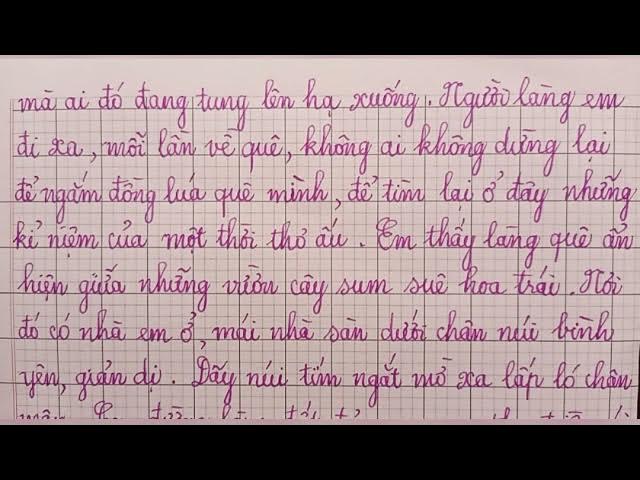 mà ai đó đang tung lên hạ xuống. Người làng em
đi xa, mỗi lần về quê, không ai không dừng lại
để ngắm đồng lúa quê mình, để tìm lại ở đây những
kỉ niệm của một thời thơ ấu. Em thấy làng quê ẩn
hiện giữa những vườn cây sum suê hoa trái. Nơi
đó có nhà em ở, mái nhà sàn dưới chân núi bình
yên, giản dị. Dãy núi tím ngắt mờ xa lấp ló chân